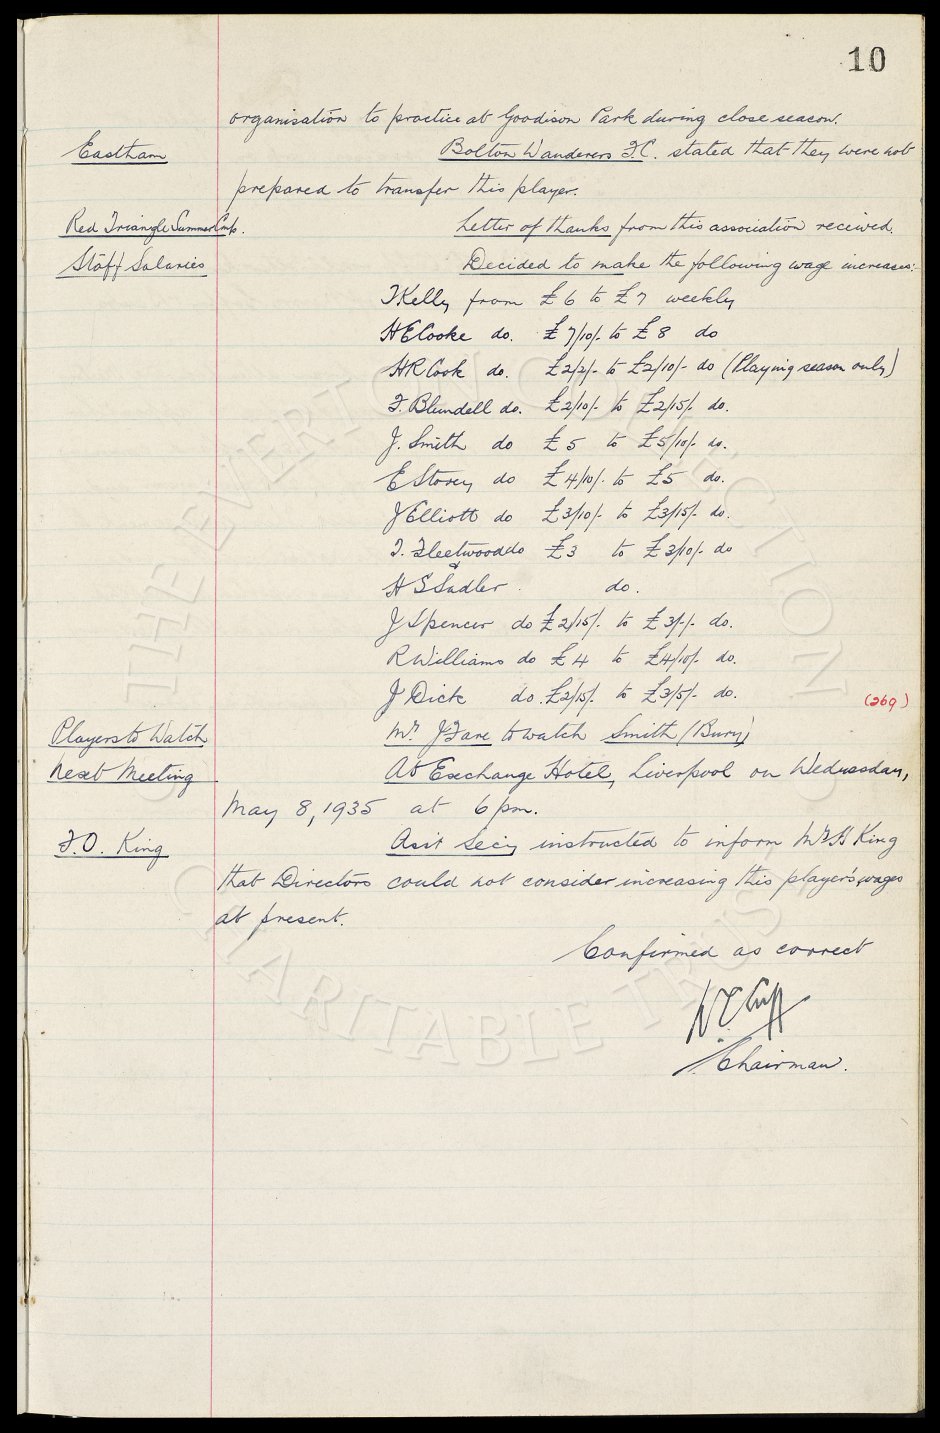 10
organisation to practice at Goodison Park during close season.
Eastham Bolton Wanderers F.C. stated that they were not
prepared to transfer this player.
Red Triangle Summer Camps. Letter of thanks from this association received.
Staff Salaries Decided to make the following wage increases:-
T Kelly from £6 to £7 weekly
H E Cooke do. £7/10/- to £8 do
H R Cook do. £2/2/- to £2/10/- do (Playing season only)
F. Blundell do. £2/10/- to £2/15/- do.
J. Smith do £5 to £5/10/- do.
E Storey do £4/10/- to £5 do.
J Elliott do £3/10/- to £3/15/- do.
T. Fleetwood do £3 to £3/10/- do
&
H S Sadler do.
J Spencer do £2/15/- to £3/-/- do.
R Williams do £4 to £4/10/- do.
J Dick do. £2/15/- to £3/5/- do.
(269)
Players to Watch Mr. J Fare to watch Smith (Bury)
Next Meeting At Exchange Hotel, Liverpool on Wednesday,
May 8, 1935 at 6 pm.
F.O. King Asst Secy instructed to inform Mr F H King
that Directors could not consider increasing this player's wages
at present.
Confirmed as correct
W C Cuff
Chairman.
THE EVERTON COLLECTION
CHARITABLE TRUST